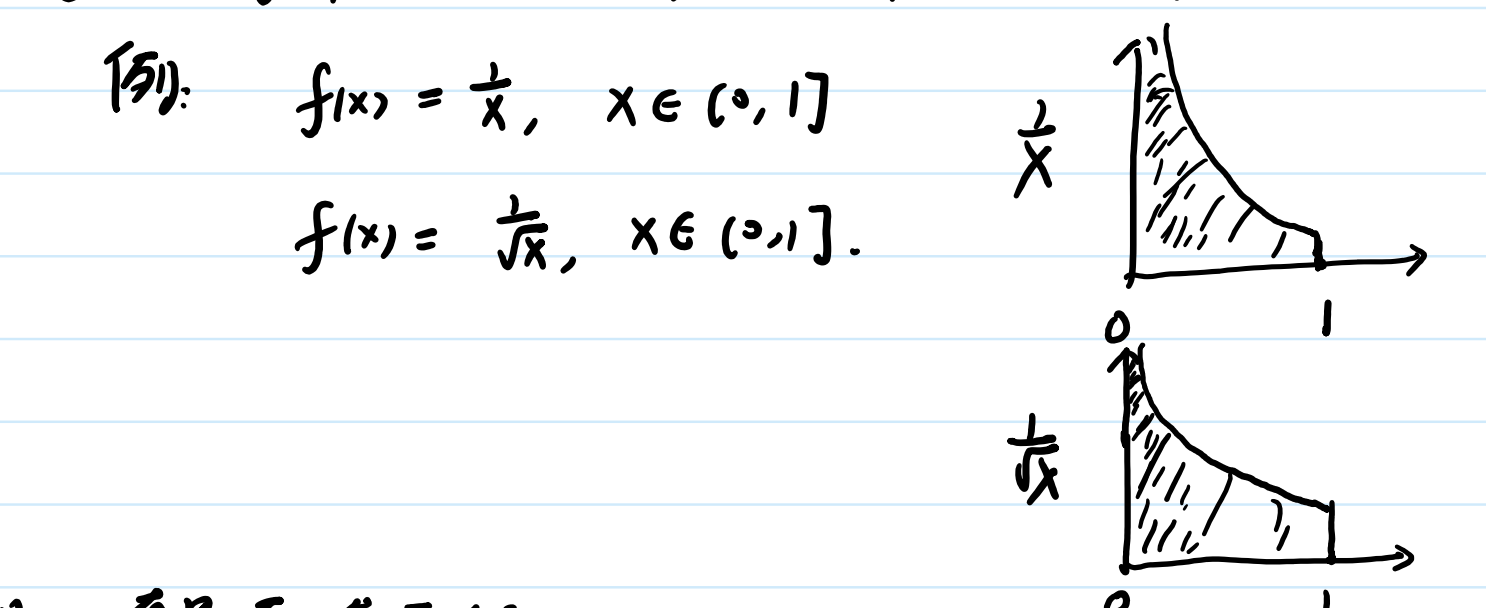 例: f(x) = 1/x, x ∈ (0, 1]
f(x) = 1/√x, x ∈ (0,1].
1/x
0 1
1/√x